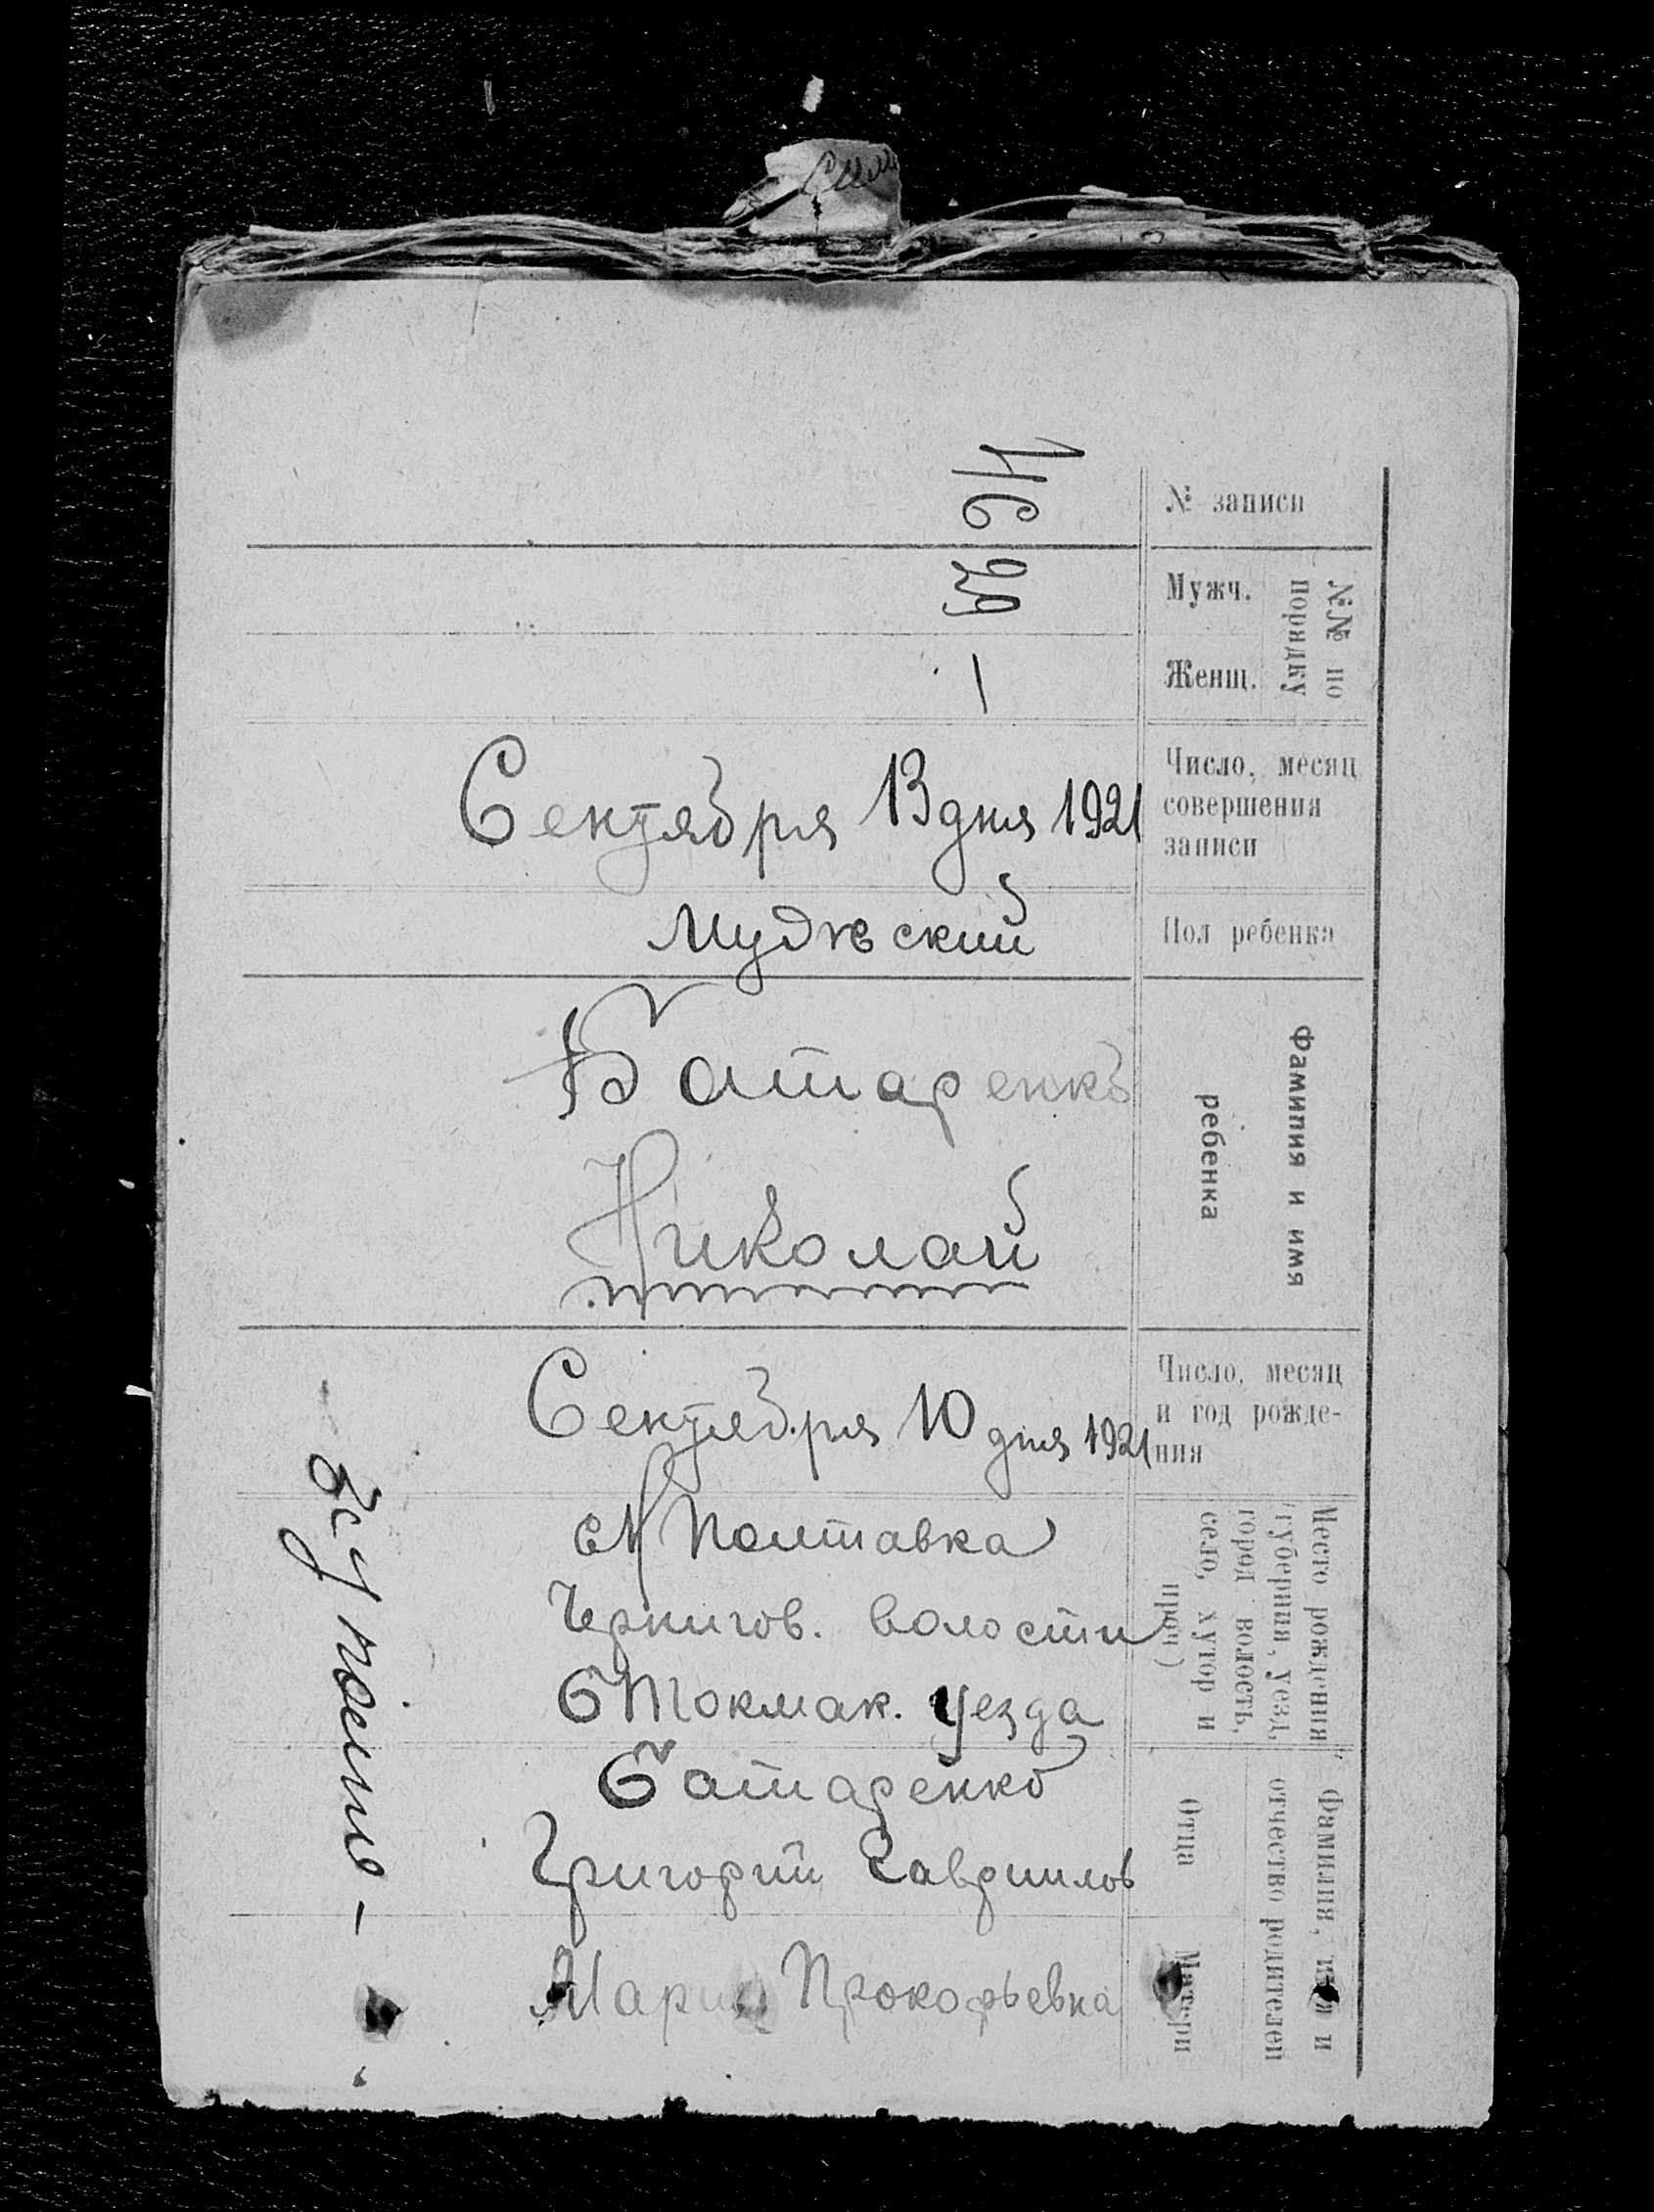 № записи
46
№№ по
порядку
Мужч.
29
Женщ.
—
Число, месяц
совершения
записи
Сентября 13 дня 1921
Пол ребенка
Мужеский
Фамилия и имя
ребенка
Батаренко
Николай
Число, месяц
и год рожде-
ния
Сентября 10 дня 1921
Место рождения
(губерния, уезд,
город волость,
село, хутор и
проч)
с Н Полтавка
Чернигов. волости
Б Токмак. уезда
Фамилия, имя и
отчество родителей
Отца
Батаренко
Григорий Гаврилов
Матери
Мария Прокофьевна